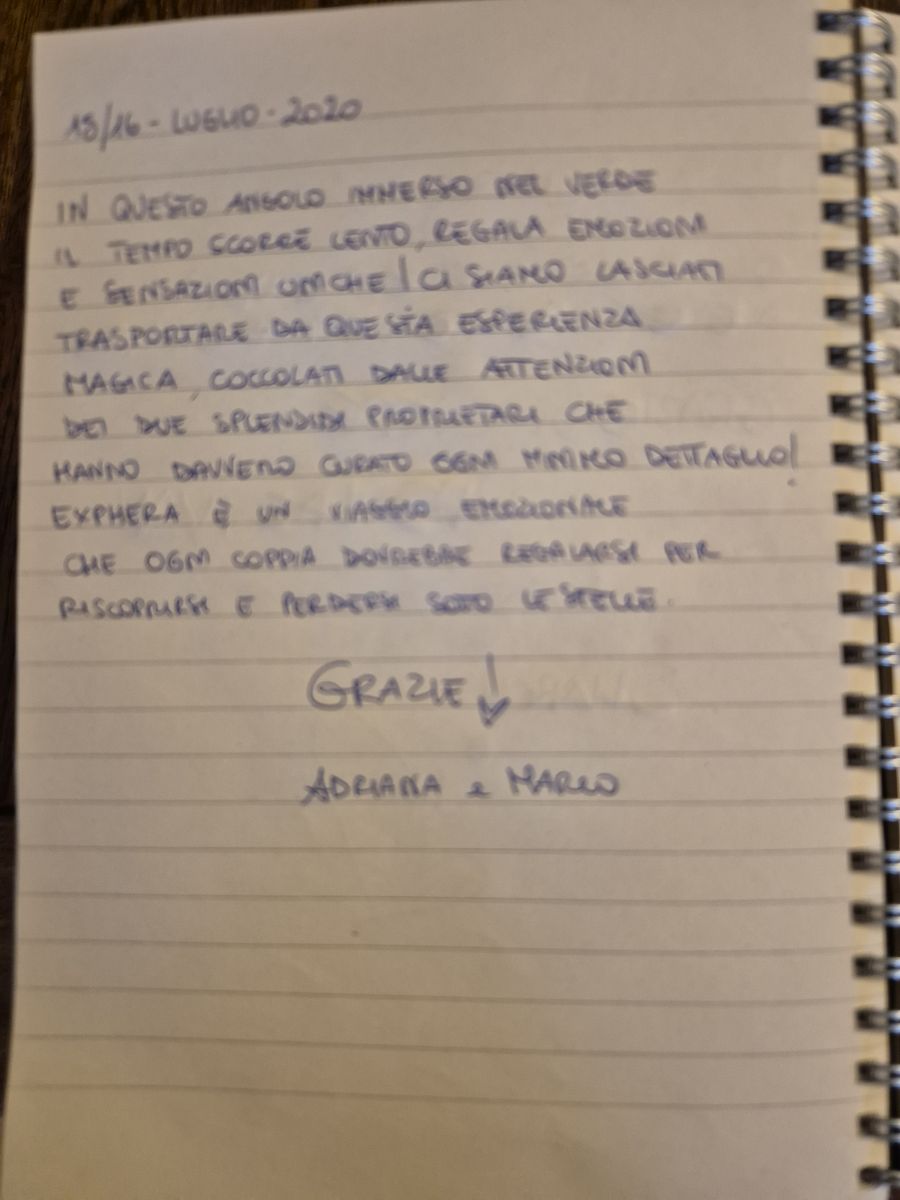 15/16 - LUGLIO - 2020
IN QUESTO ANGOLO IMMERSO NEL VERDE
IL TEMPO SCORRE LENTO, REGALA EMOZIONI
E SENSAZIONI UNICHE! CI SIAMO LASCIATI
TRASPORTARE DA QUESTA ESPERIENZA
MAGICA, COCCOLATI DALLE ATTENZIONI
DEI DUE SPLENDIDI PROPRIETARI CHE
HANNO DAVVERO CURATO OGNI MINIMO DETTAGLIO!
EXPHERA È UN VIAGGIO EMOZIONALE
CHE OGNI COPPIA DOVREBBE REGALARSI PER
RISCOPRIRSI E PERDERSI SOTTO LE STELLE.
GRAZIE!
ADRIANA e MARCO